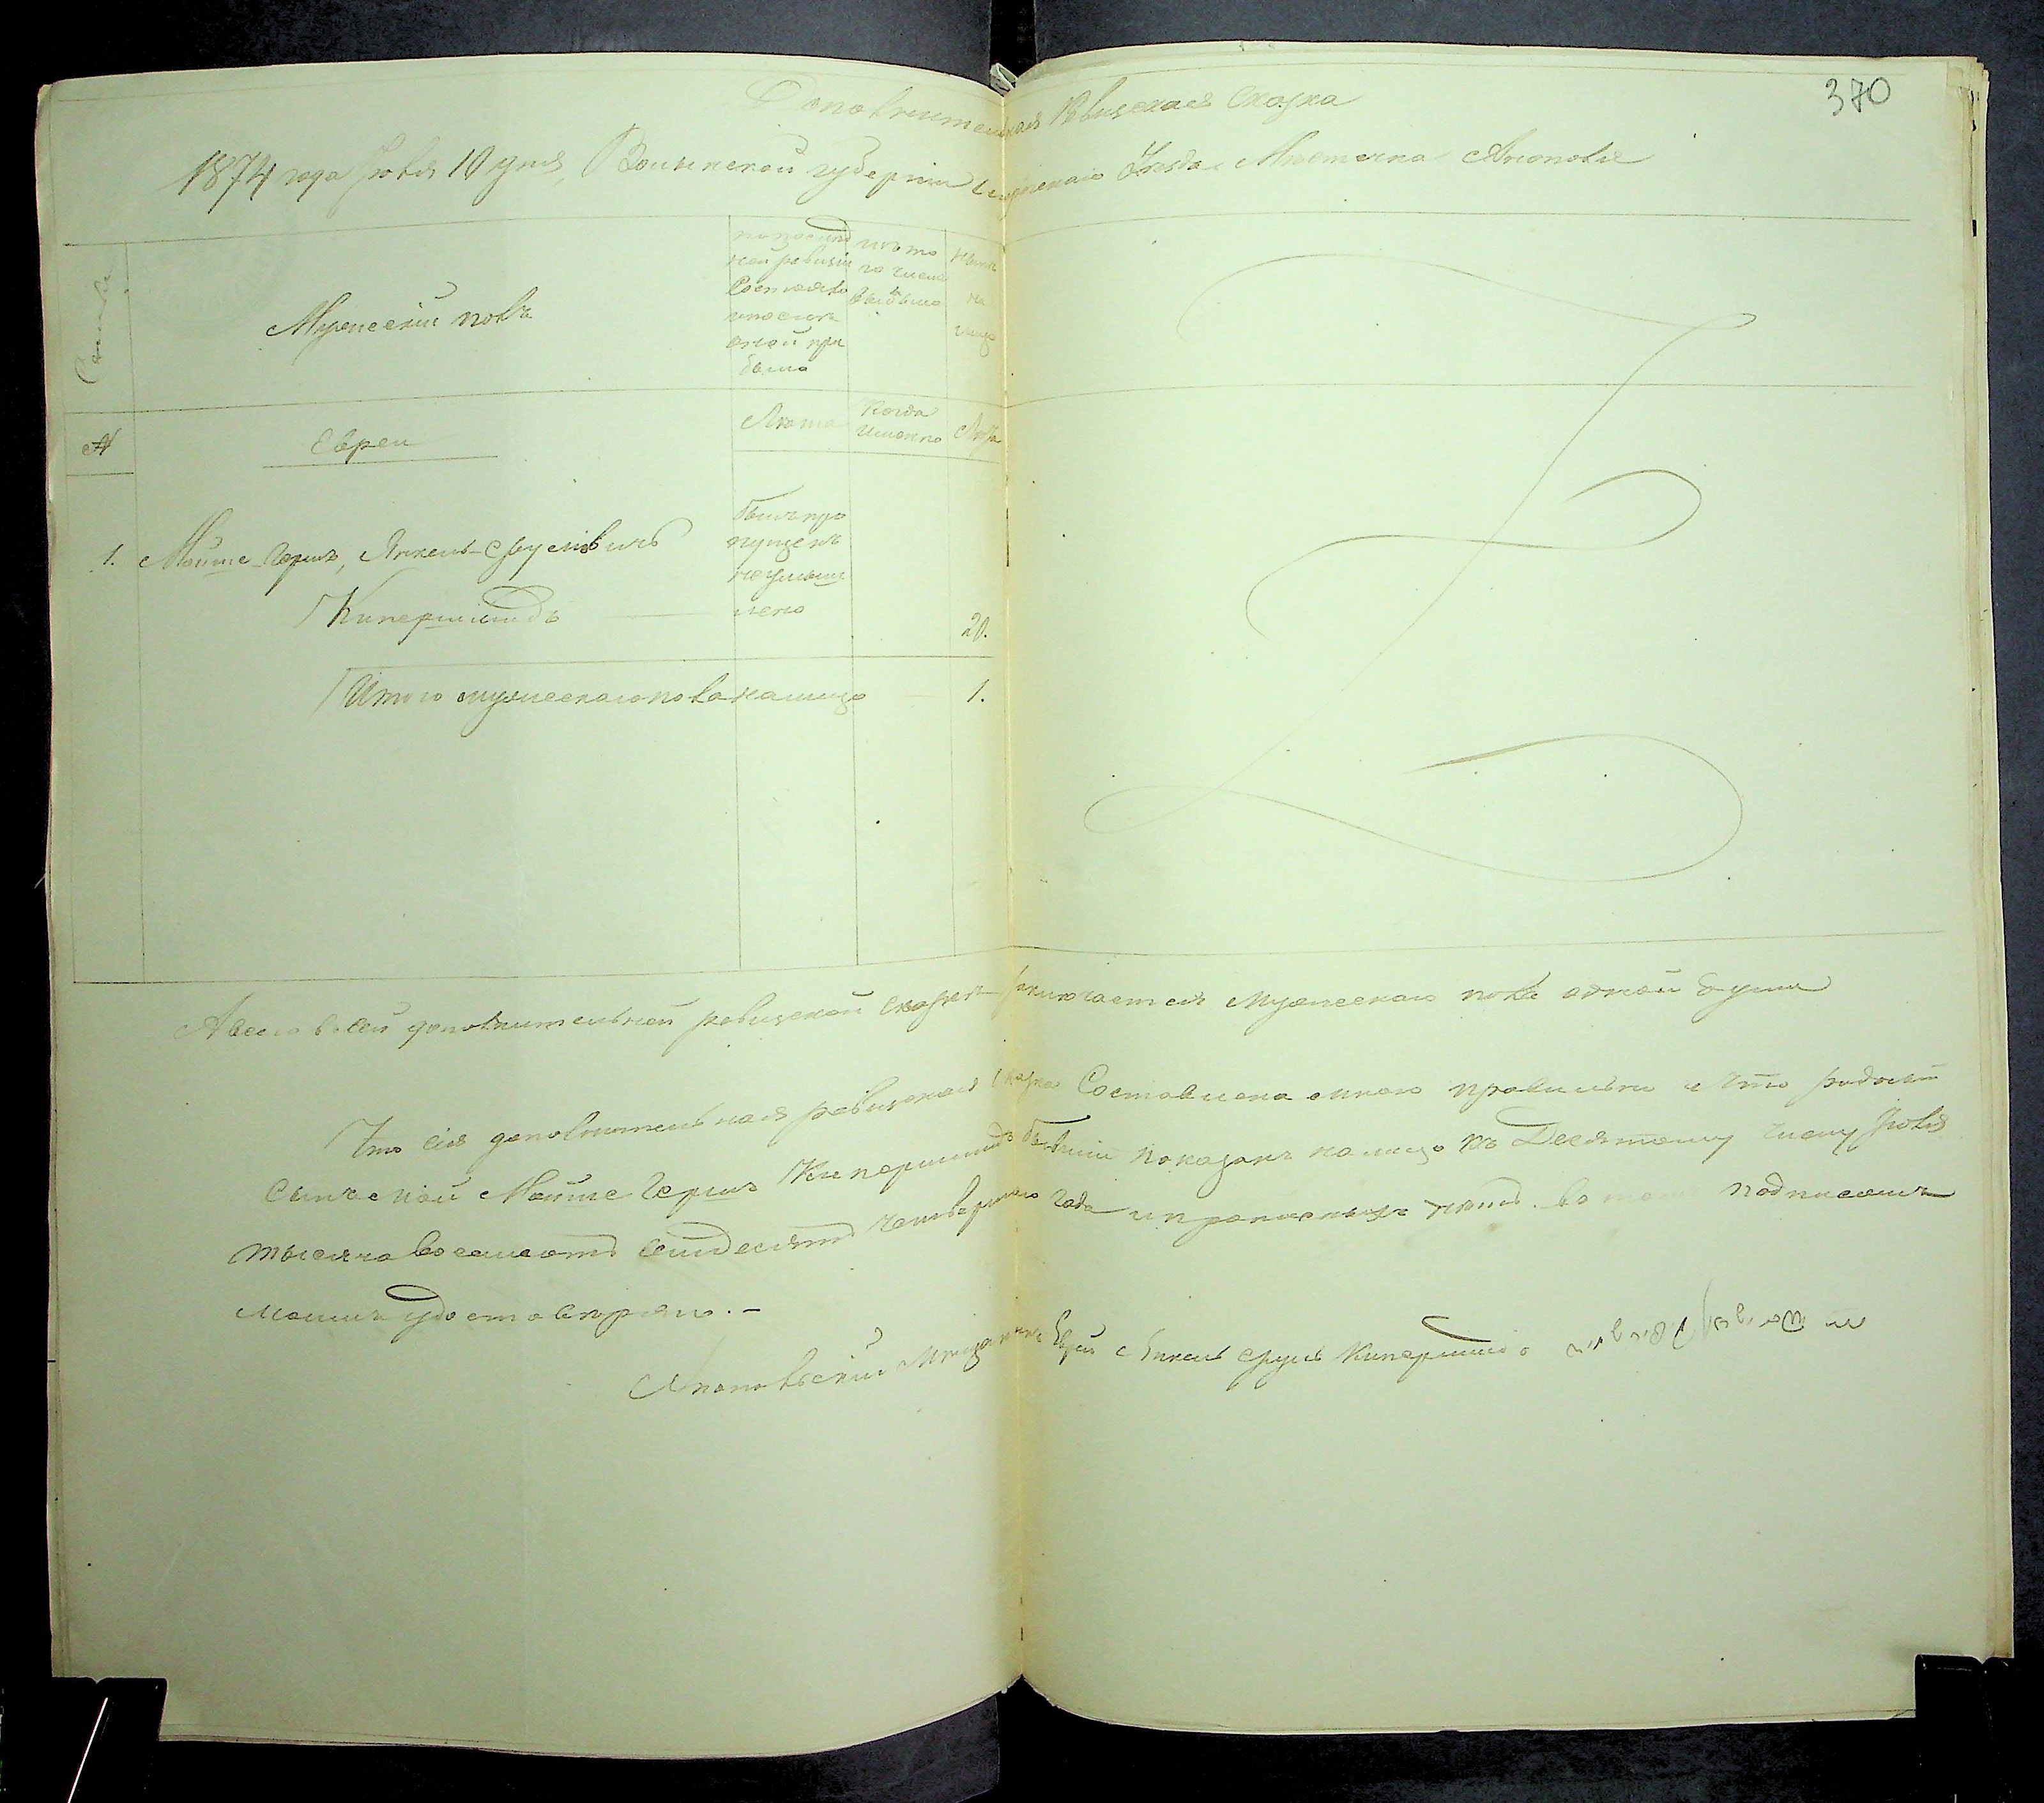 370
Дополнительная Ревизская Сказка
1874 года Іюля 10 дня, Волынской губерніи уѣзда Мѣстечка Ляховле
Семьи
Мужескій полъ
по послѣд
ней ревизіи
Состояло
и послѣ
оной при
было
изъ то
го числа
выбыло
Нынѣ
на
лицо
№
Евреи
Лѣта
Когда
именно
Лѣта
1. Мойше-Гершъ, Янкель-Сруліовичъ
Кипершмидъ
былъ про
пущенъ
неумыш
лено
20.
Итого мужескаго пола на лицо 1.
А всего въ сей дополнительной ревизской сказкѣ заключается Мужескаго пола одной души
Что сія дополнительная ревизская сказка Составлена мною правильно и что родной
сынъ мой Мойше Гершъ Кипершмидъ показанъ на лицо къ Десятому числу Іюля
тысяча восемсотъ семдесятъ четвертаго года и прописныхъ нѣтъ. въ томъ подписомъ
моимъ удостовѣряю. –
Мѣщанинъ Еврей Янкель Сруль Кипершмидъ